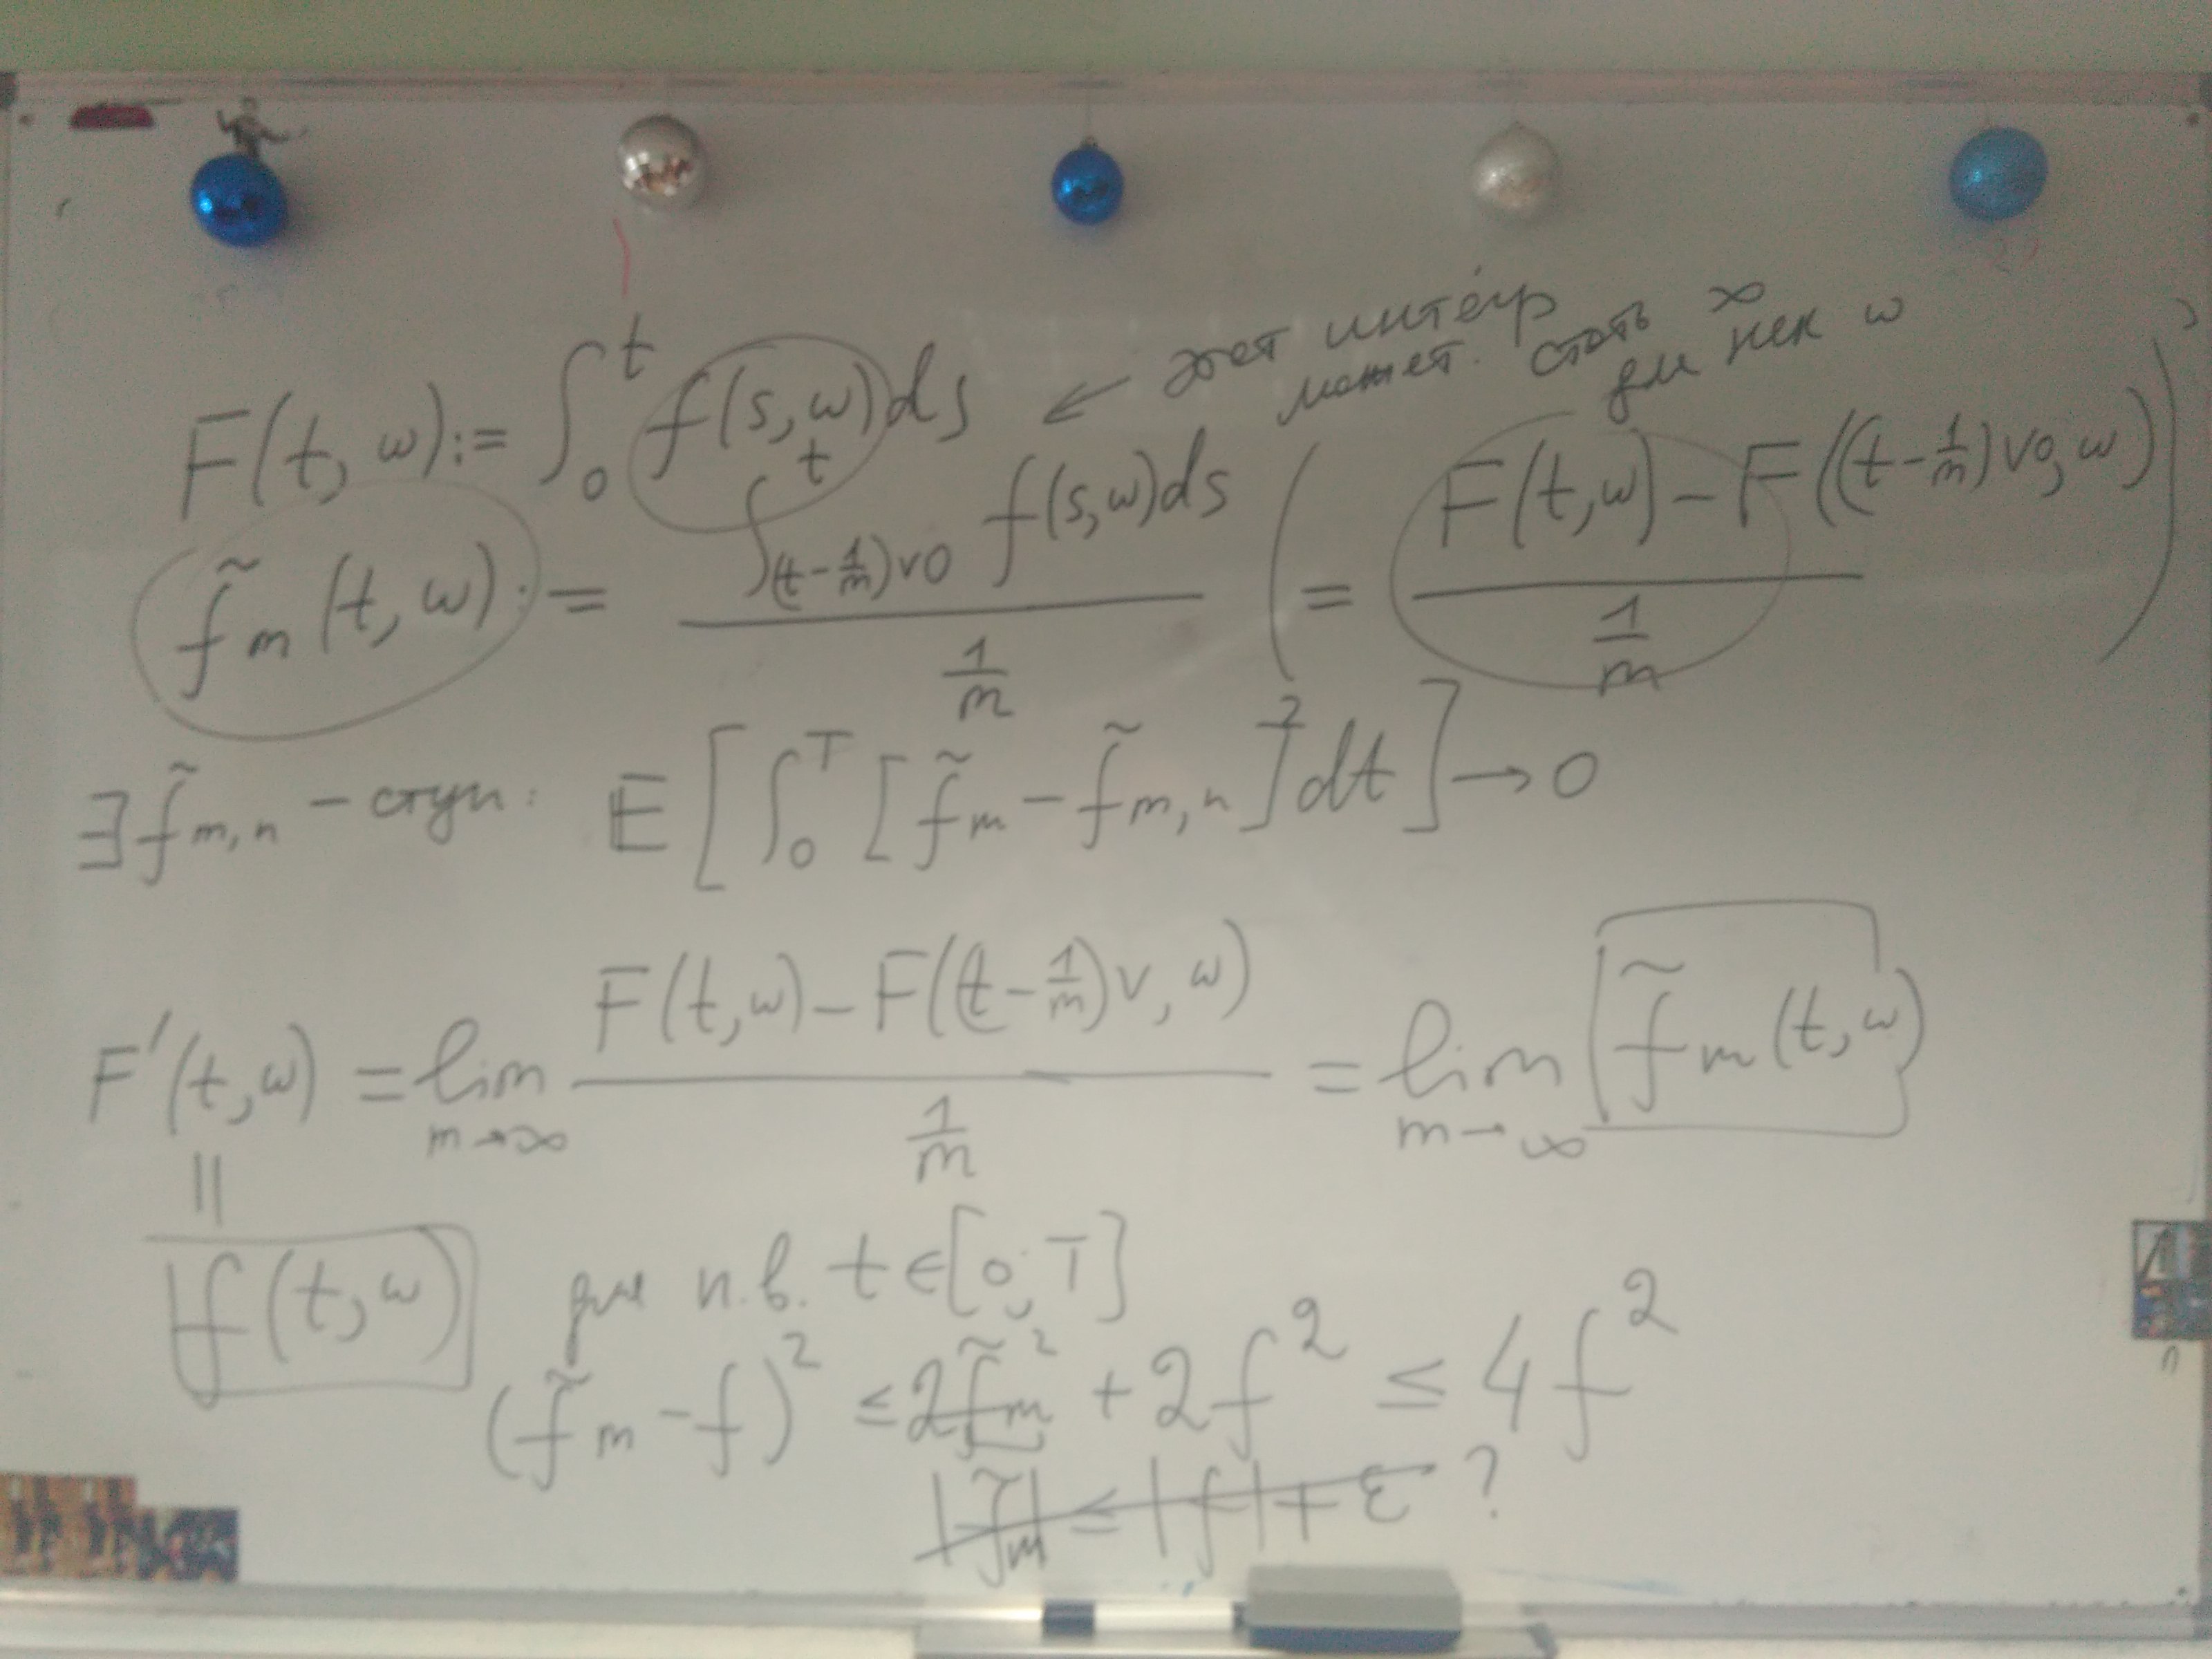 F(t, ω) := ∫₀ᵗ f(s, ω) ds ← этот интегр
может. стать ∞
для нек ω
f̃ₘ(t, ω) := ∫_{(t-1/m)∨0}^t f(s, ω) ds / (1/m) ( = (F(t, ω) - F((t-1/m)∨0, ω)) / (1/m) )
∃ f̃ₘ,ₙ - ступ: E[∫₀ᵀ [f̃ₘ - f̃ₘ,ₙ]² dt] → 0
F'(t, ω) = lim_{m→∞} (F(t, ω) - F((t-1/m)∨, ω)) / (1/m) = lim_{m→∞} f̃ₘ(t, ω)
||
f(t, ω) для п.в. t ∈ [0; T]
(f̃ₘ - f)² ≤ 2f̃ₘ² + 2f² ≤ 4f²
|f̃ₘ| ≤ |f| + ε ?